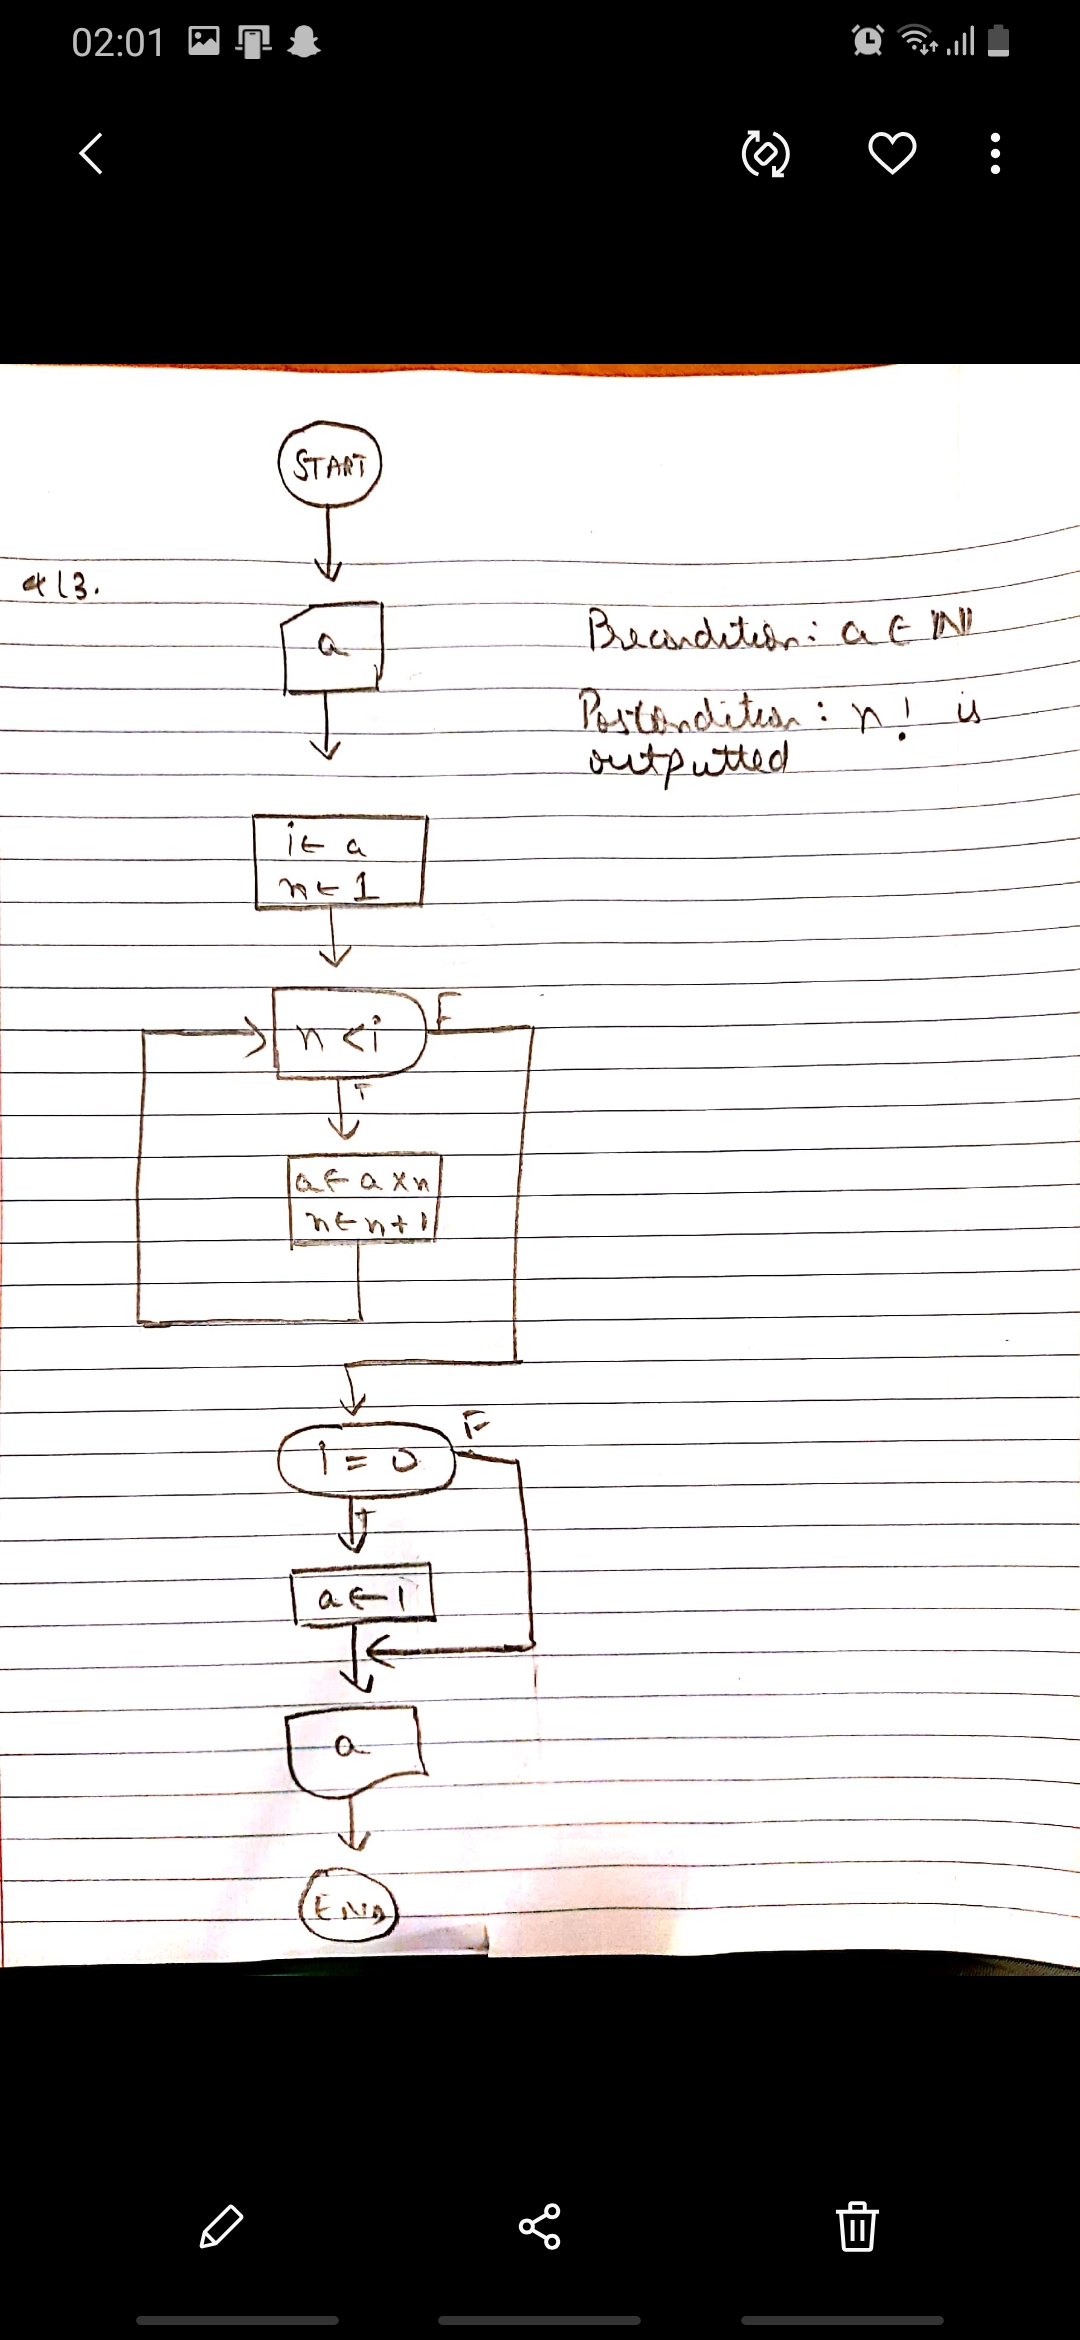 02:01
START
Q13.
a
Precondition: a ∈ ℕ
Postcondition: n! is
outputted
i ← a
n ← 1
n < i
F
T
a ← a × n
n ← n + 1
i = 0
F
T
a ← 1
a
END